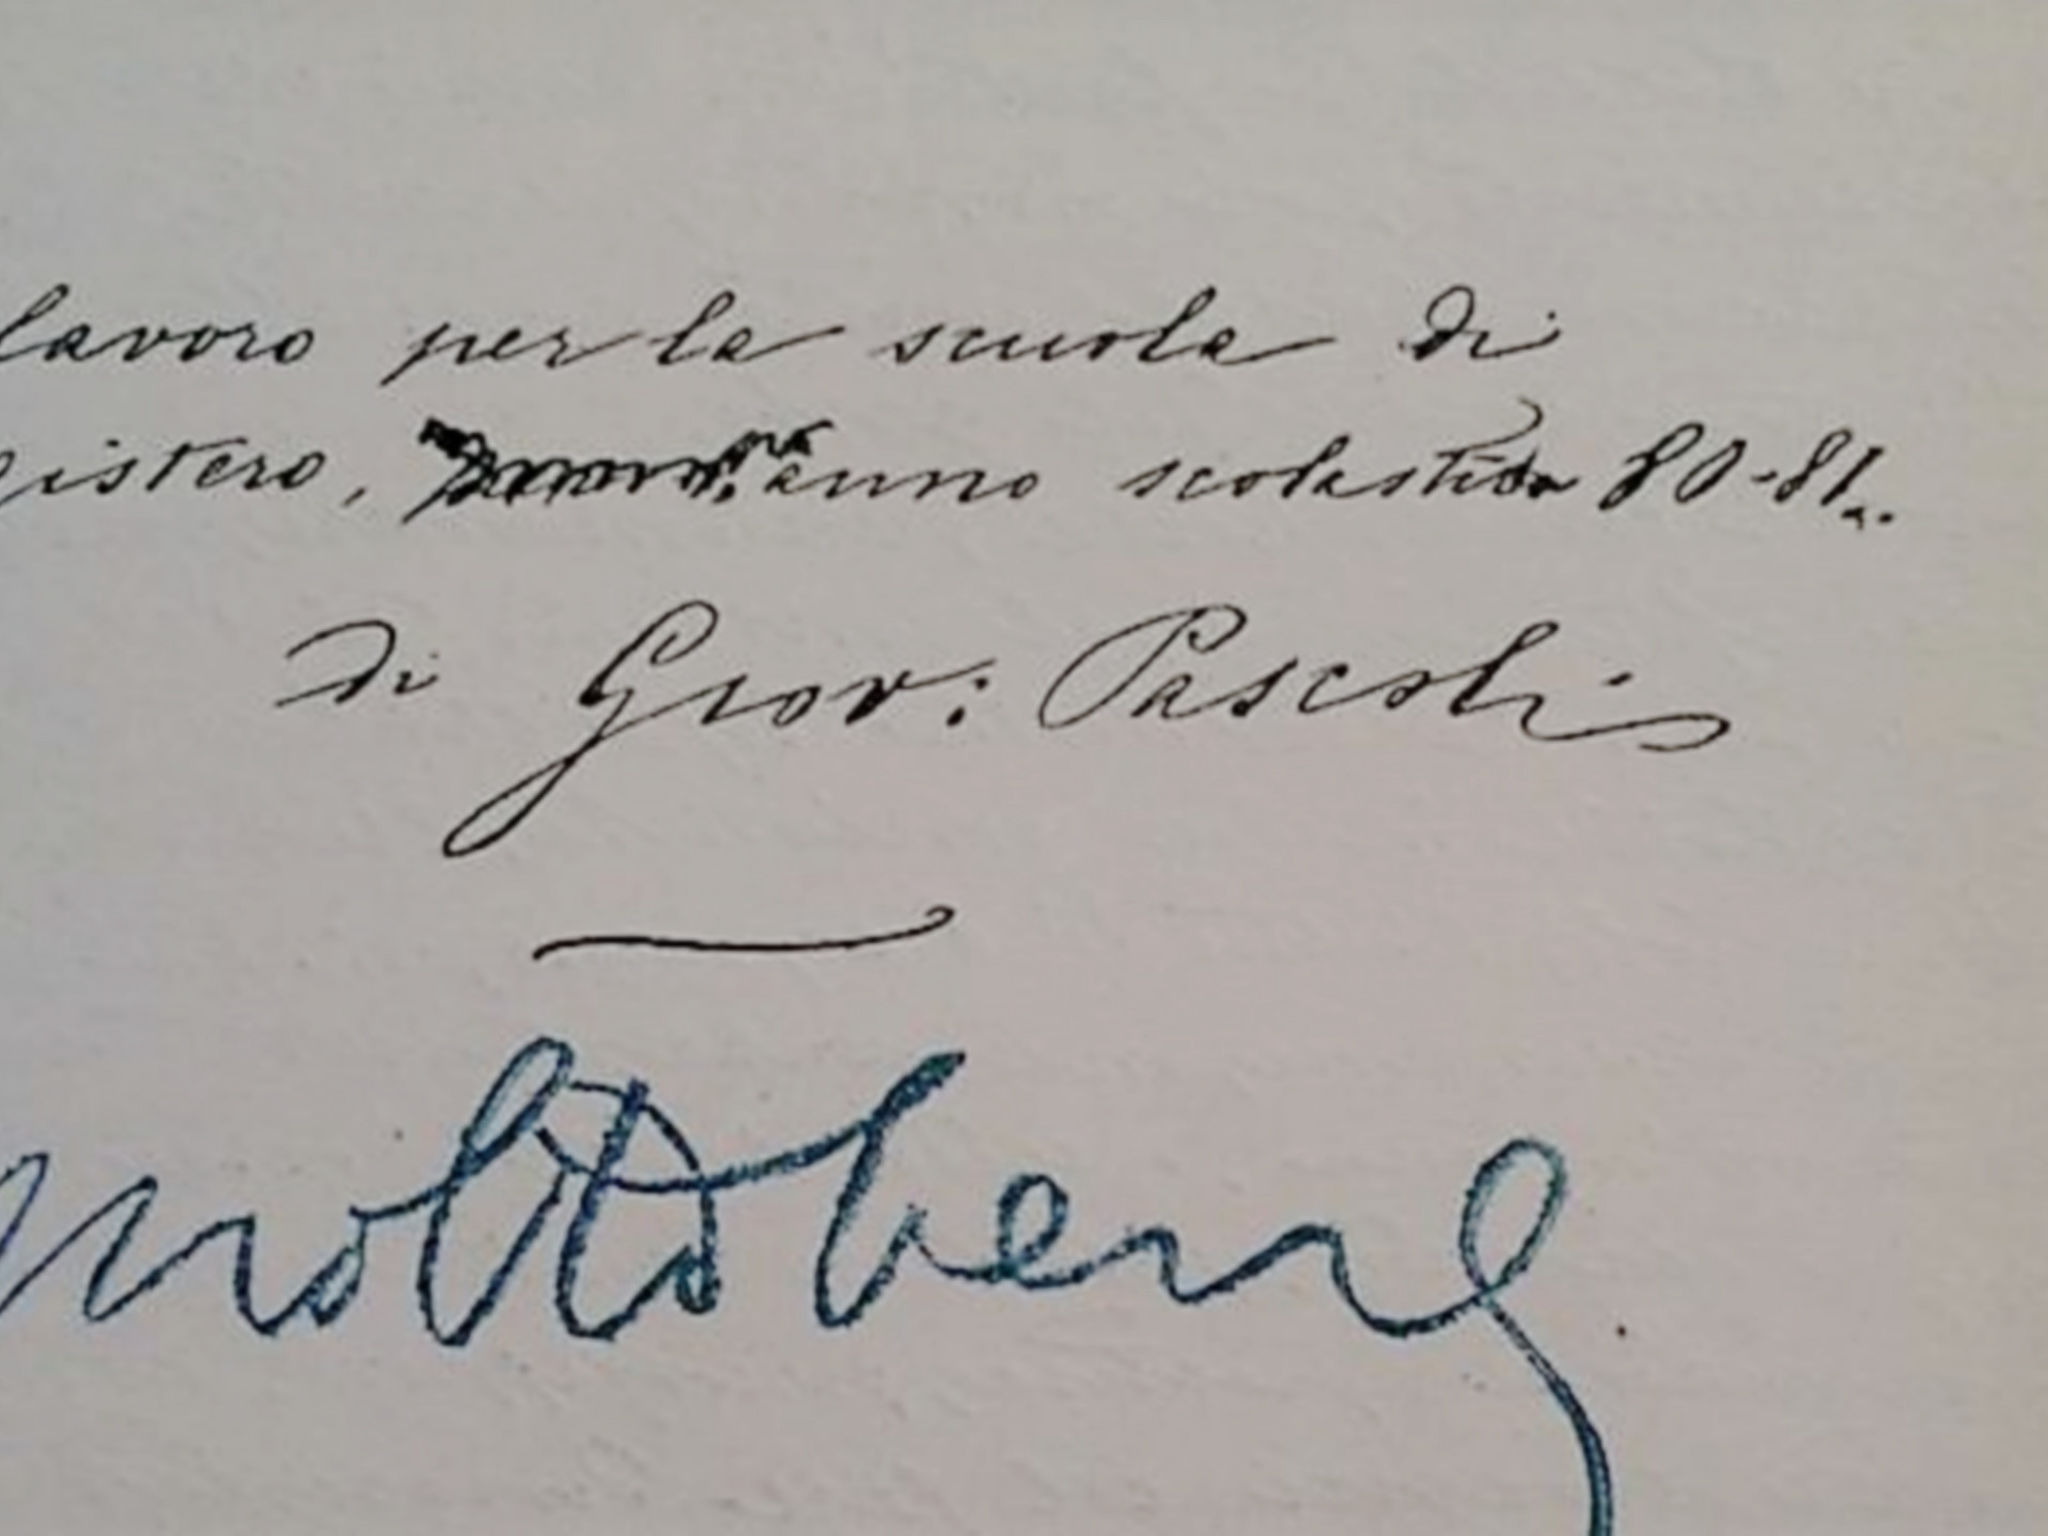 lavoro per la scuola di
gistero, anno scolastico 80-81.
di Giov: Pascoli
molto bene